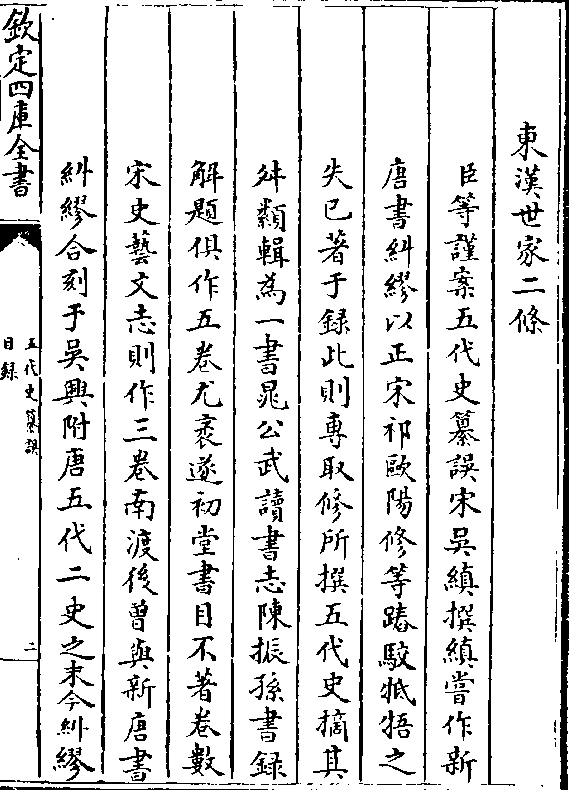 東漢世家二條
臣等謹案五代史纂誤宋吳縝撰縝嘗作新
唐書糾繆以正宋祁歐陽修等踳駁牴牾之
失已著于錄此則專取修所撰五代史摘其
舛類輯為一書晁公武讀書志陳振孫書錄
解題俱作五卷尤袤遂初堂書目不著卷數
宋史藝文志則作三卷南渡後曾與新唐書
糾繆合刻于吳興附唐五代二史之末今糾繆
欽定四庫全書
五代史纂誤
目錄
二